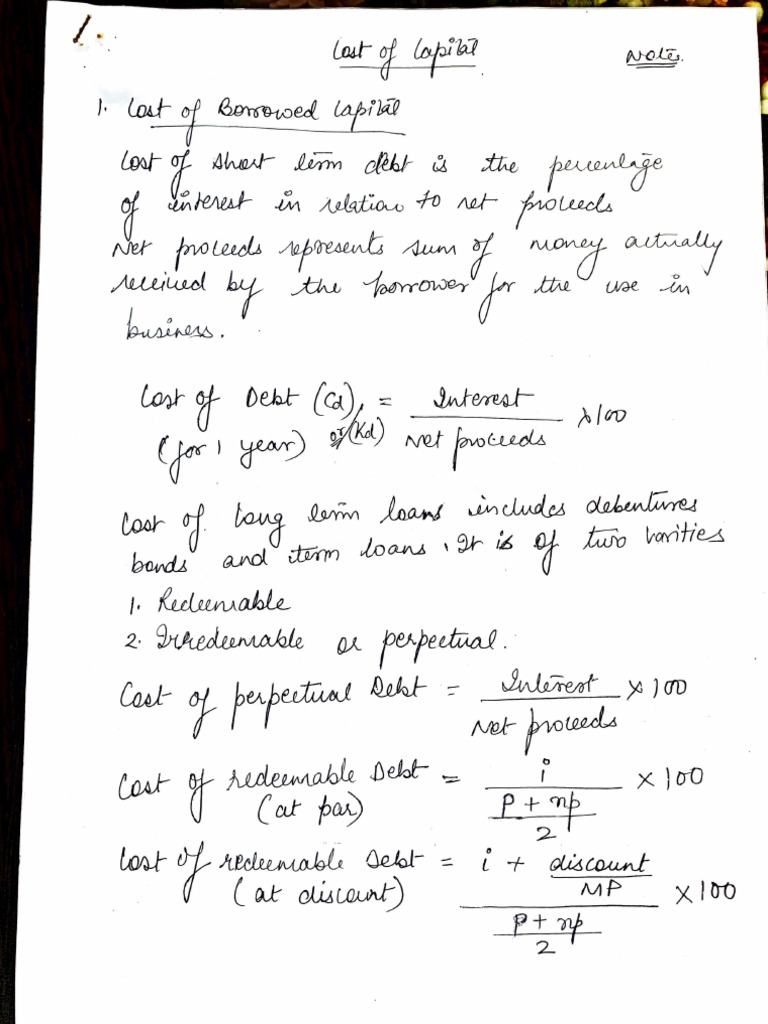 1.
Cost of Capital Notes.
1. Cost of Borrowed Capital
Cost of short term debt is the percentage
of interest in relation to net proceeds
Net proceeds represents sum of money actually
received by the borrower for the use in
business.
Cost of Debt (Cd) = Interest / Net proceeds × 100
(for 1 year) or (Kd)
Cost of long term loans includes debentures
bonds and term loans. It is of two varities
1. Redeemable
2. Irredeemable or perpectual.
Cost of perpectual Debt = Interest / Net proceeds × 100
Cost of redeemable Debt = i / ((P + np) / 2) × 100
(at par)
Cost of redeemable Debt = (i + discount / MP) / ((P + np) / 2) × 100
(at discount)